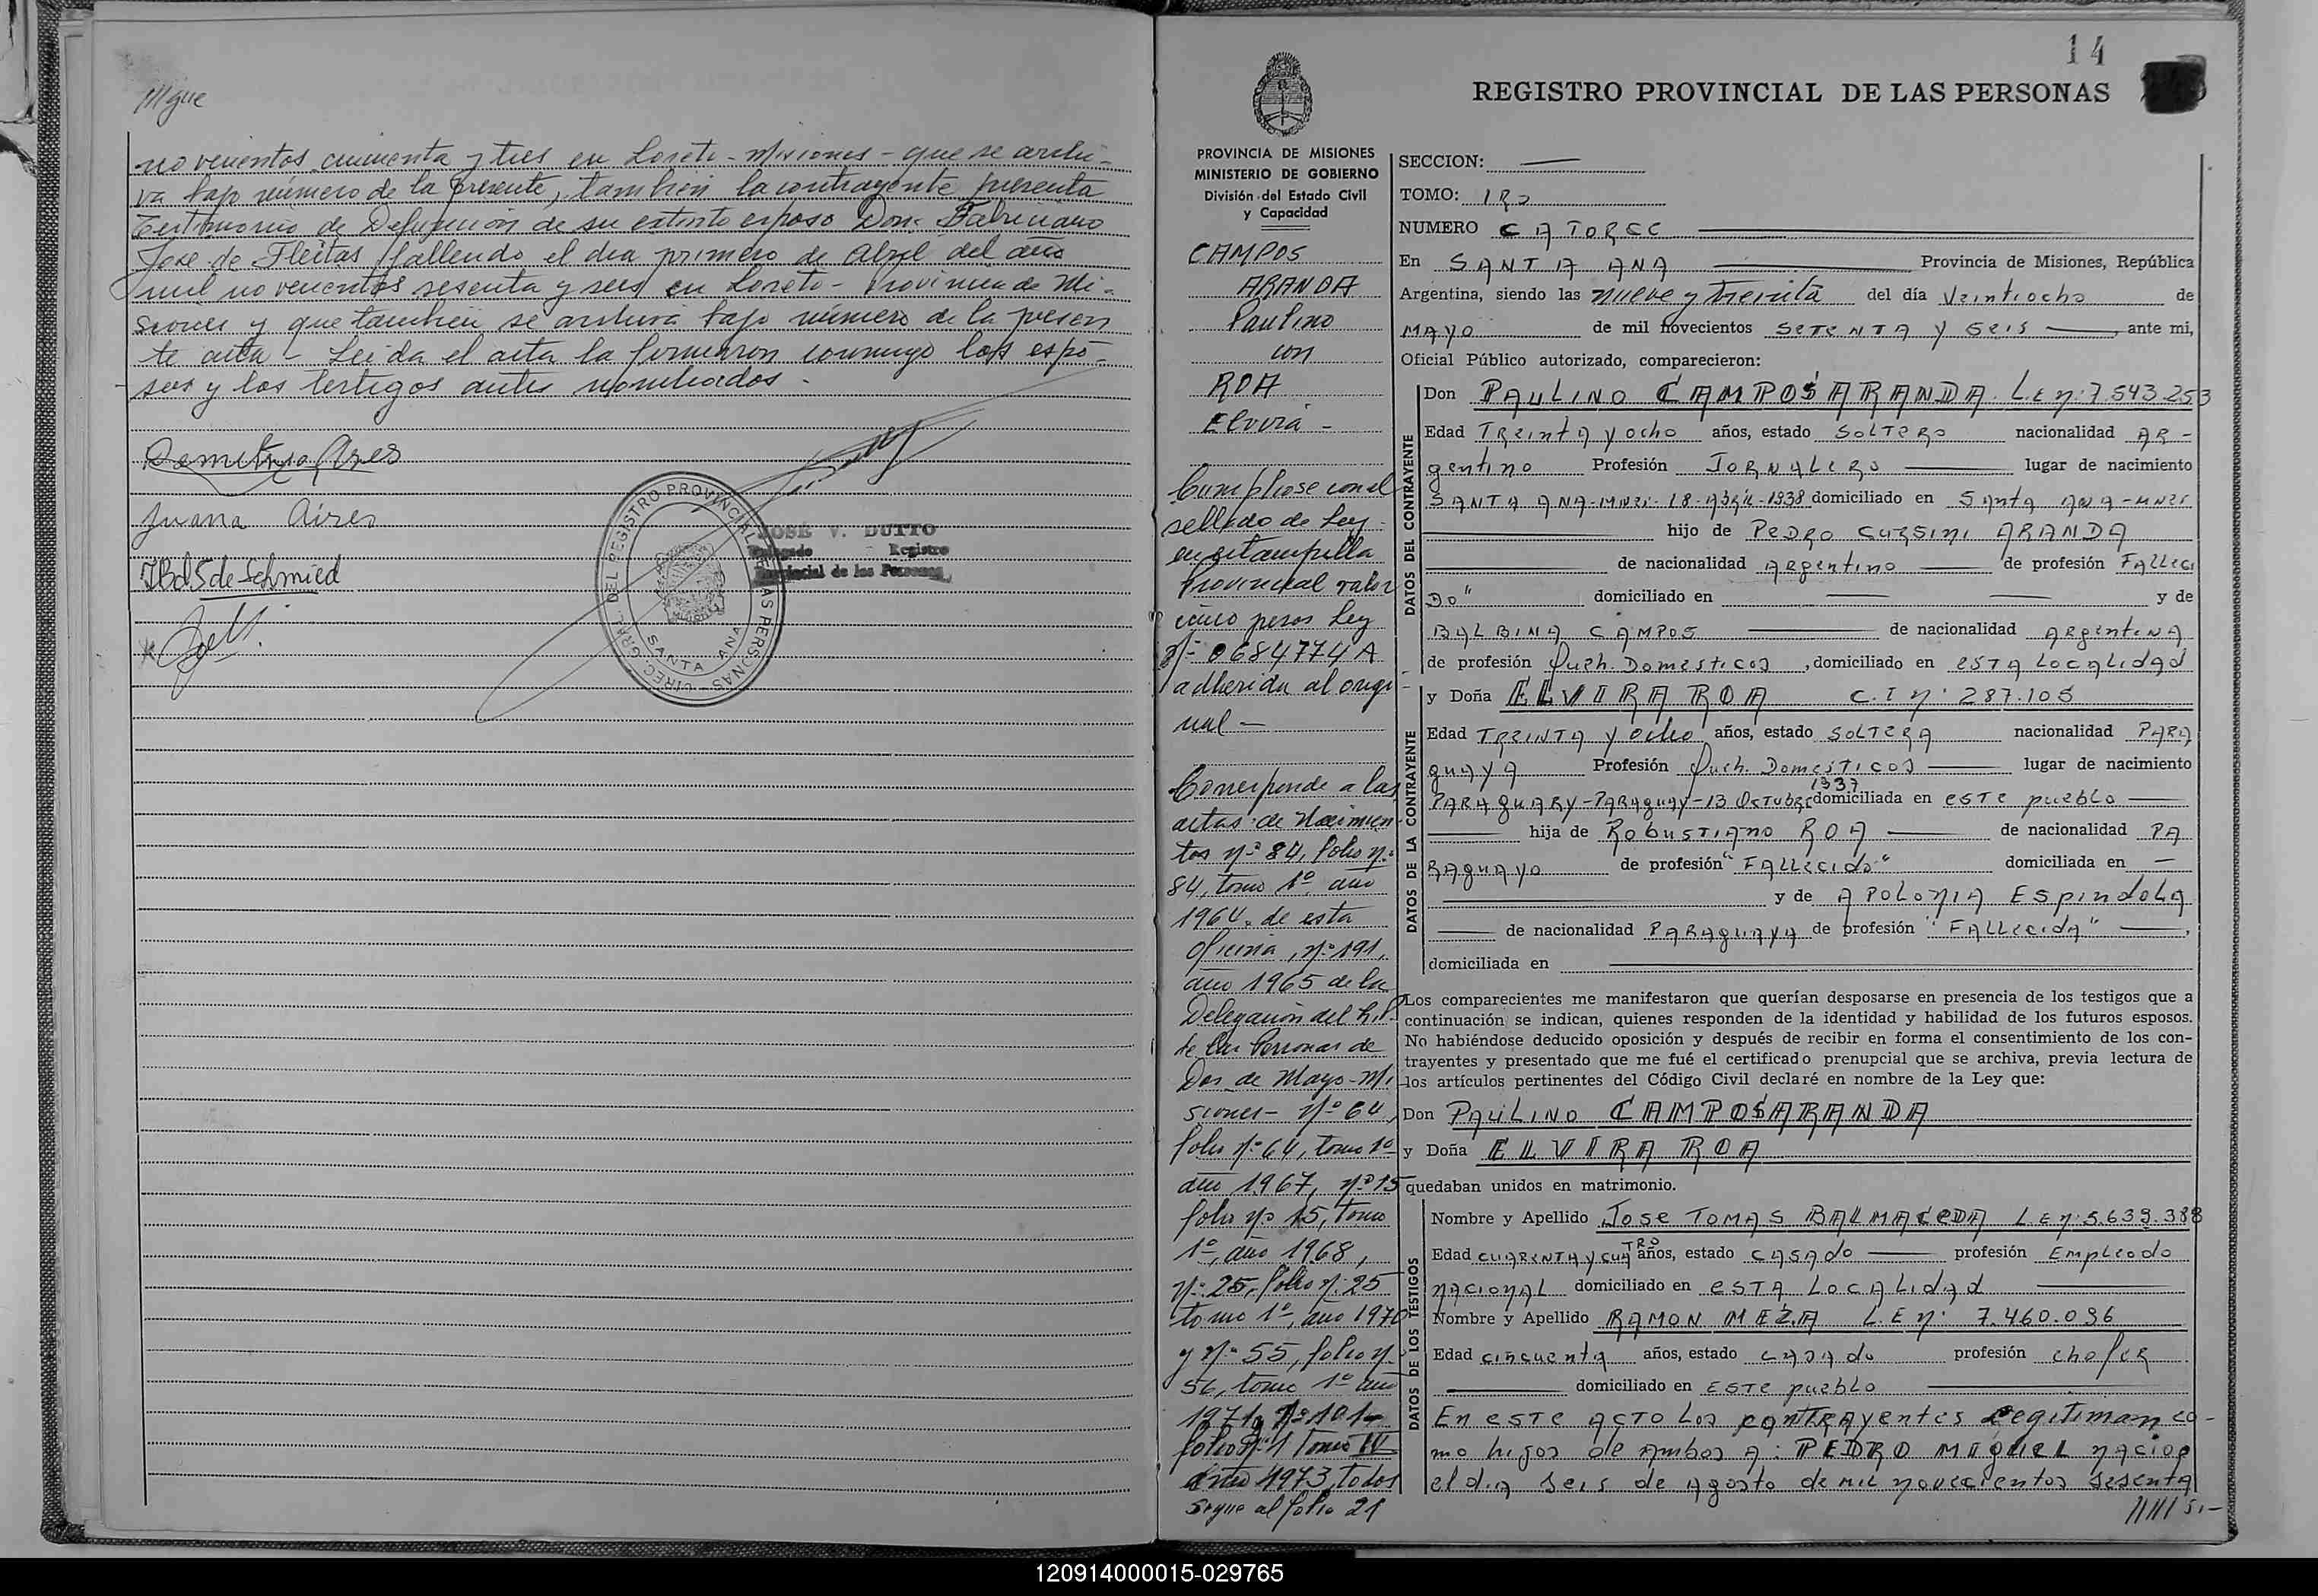 novecientos cincuenta y tres en Loreto - Misiones - que se archi-
va bajo número de la presente, también la contrayente presenta
Testimonio de Defunción de su extinto esposo Don: Fabriciano
Jose de Fleitas fallecido el dia primero de Abril del año
mil novecientos sesenta y seis en Loreto - Provincia de Mi-
siones y que tambien se archiva bajo número de la presen
te acta - Leida el acta la firmaron conmigo los espo-
sos y los testigos antes nombrados.
Juana Aires
JBdSde Schmied
DIREC. GRAL. DEL REGISTRO PROVINCIAL DE LAS PERSONAS
SANTA ANA
JOSÉ V. DUTTO
Delegado Registro
Provincial de las Personas
14
REGISTRO PROVINCIAL DE LAS PERSONAS
PROVINCIA DE MISIONES
MINISTERIO DE GOBIERNO
División del Estado Civil
y Capacidad
CAMPOS
ARANDA
Paulino
con
ROA
Elvira -
Cumpliose con el
sellado de Ley
en estampilla
Provincial valor
cinco pesos Ley
Nº 0684774A
adherida al origi
nal -
Corresponde a las
actas de Nacimien
tos nº 84, folio nº
84, tomo 1º año
1964 de esta
oficina, nº 191,
año 1965 de la
Delegación del R.P.
de las Personas de
Dos de Mayo - Mi
siones - Nº 64,
folio nº 64, tomo 1º
año 1967, nº 15
folio nº 15, tomo
1º, año 1968,
nº 25, folio nº 25
tomo 1º, año 1970
y nº 55, folio nº
56, tomo 1º año
1971, nº 101-
folio nº 1 Tomo IV
año 1973, todos
sigue al folio 21
SECCION:
TOMO: 1RO
NUMERO CATORCE
En SANTA ANA Provincia de Misiones, República
Argentina, siendo las nueve y treinta del día Veintiocho de
MAYO de mil novecientos SETENTA Y SEIS ante mi,
Oficial Público autorizado, comparecieron:
DATOS DEL CONTRAYENTE
Don PAULINO CAMPOS ARANDA L.E nº 7.543.253
Edad TREINTA y ocho años, estado SOLTERO nacionalidad AR-
gentino Profesión JORNALERO lugar de nacimiento
SANTA ANA-MNES- 18-ABRIL-1938 domiciliado en SANTA ANA-MNES
hijo de PEDRO CURSINI ARANDA
de nacionalidad ARgentino de profesión "FALLECI
DO" domiciliado en y de
BALBINA CAMPOS de nacionalidad ARgentina
de profesión Queh. Domesticos, domiciliado en ESTA LOCALIDAD
DATOS DE LA CONTRAYENTE
y Doña ELVIRA ROA C.I nº 287.105
Edad TREINTA y ocho años, estado SOLTERA nacionalidad PARA
guaya Profesión Queh. Domesticos lugar de nacimiento
PARAGUARY-PARAguay-13 OCTUBRE 1937 domiciliada en este pueblo
hija de ROBUSTIANO ROA de nacionalidad PA
RAguayo de profesión "FALLECIDO" domiciliada en -
y de APOLONIA ESPINDOLA
de nacionalidad PARAguaya de profesión "FALLECIDA",
domiciliada en
Los comparecientes me manifestaron que querían desposarse en presencia de los testigos que a
continuación se indican, quienes responden de la identidad y habilidad de los futuros esposos.
No habiéndose deducido oposición y después de recibir en forma el consentimiento de los con-
trayentes y presentado que me fué el certificado prenupcial que se archiva, previa lectura de
los artículos pertinentes del Código Civil declaré en nombre de la Ley que:
Don PAULINO CAMPOS ARANDA
y Doña ELVIRA ROA
quedaban unidos en matrimonio.
DATOS DE LOS TESTIGOS
Nombre y Apellido JOSE TOMAS BALMACEDA L.E nº 5.633.388
Edad CUARENTA y CUATRO años, estado CASADO profesión Empleado
NACIONAL domiciliado en ESTA LOCALIDAD
Nombre y Apellido RAMON MEZA L.E nº 7.460.036
Edad cincuenta años, estado casado profesión chofer
domiciliado en ESTE pueblo
En ESTE ACTO Los contrayentes Legitiman co-
mo hijos de ambos a: PEDRO MIGUEL nacido
el dia seis de Agosto de mil novecientos sesenta
120914000015-029765